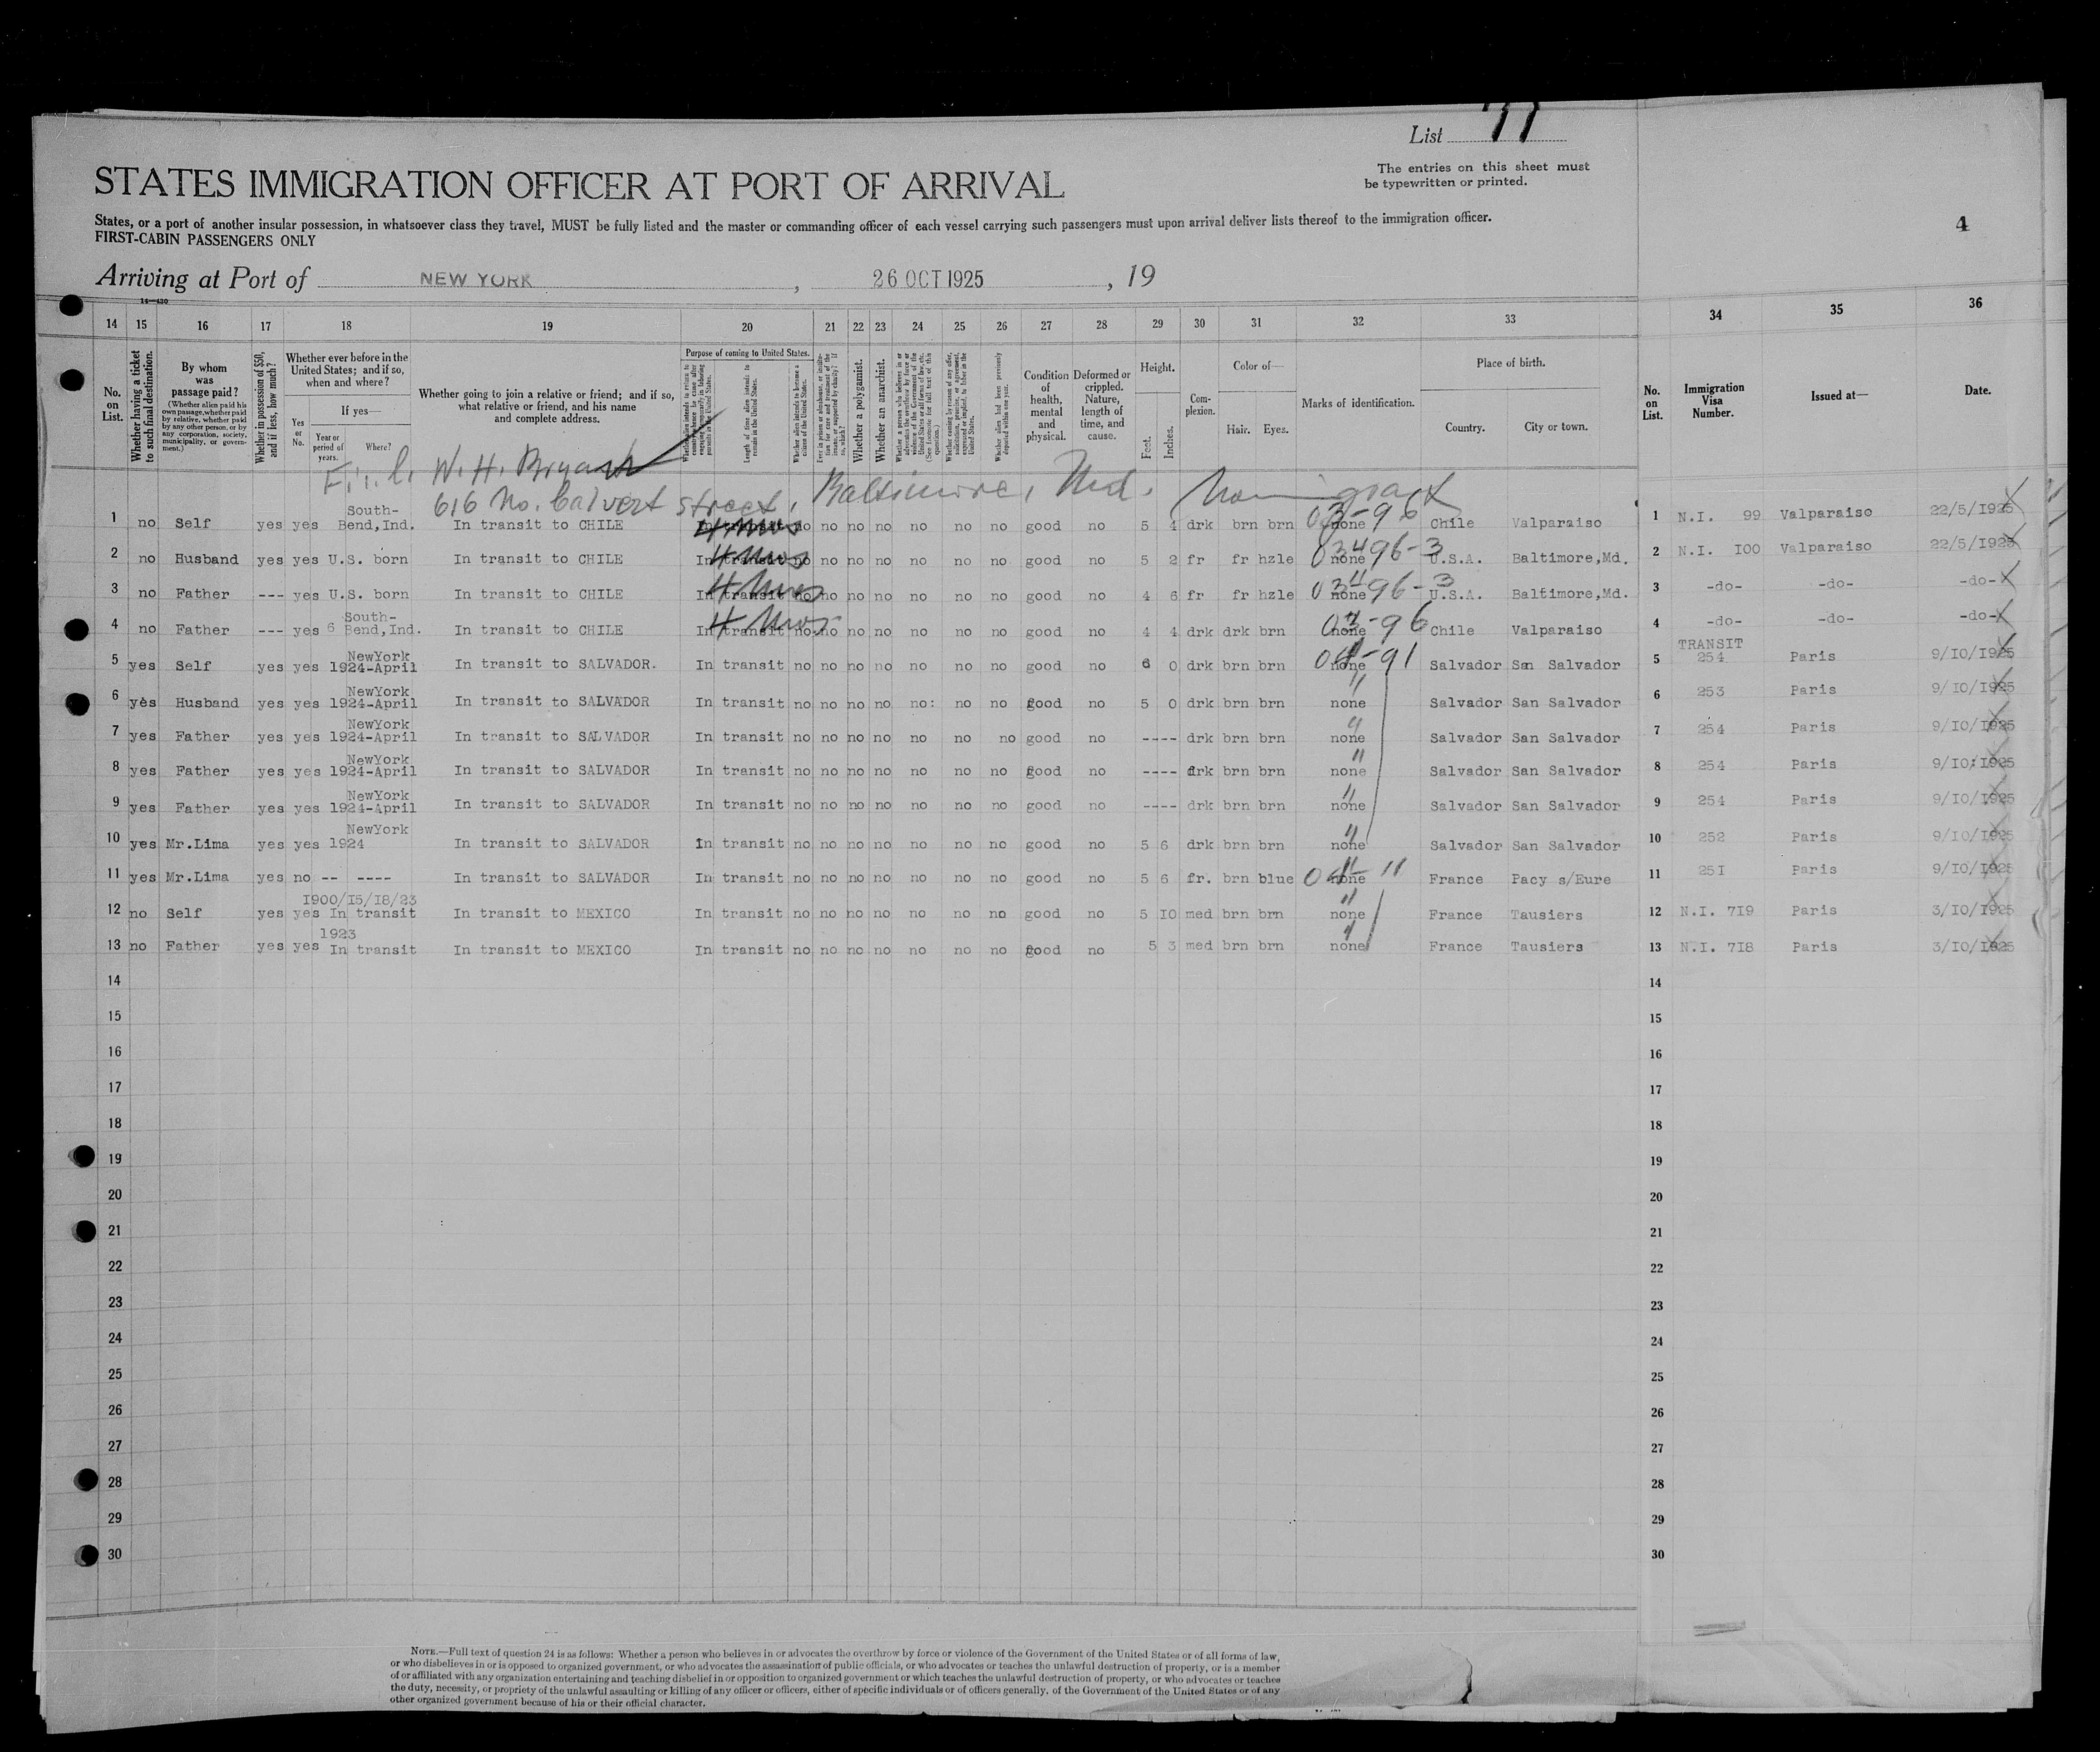 List 77
The entries on this sheet must
be typewritten or printed.
STATES IMMIGRATION OFFICER AT PORT OF ARRIVAL
4
States, or a port of another insular possession, in whatsoever class they travel, MUST be fully listed and the master or commanding officer of each vessel carrying such passengers must upon arrival deliver lists thereof to the immigration officer.
FIRST-CABIN PASSENGERS ONLY
Arriving at Port of NEW YORK, 26 OCT 1925, 19
14 15 16 17 18 19 20 21 22 23 24 25 26 27 28 29 30 31 32 33 34 35 36
No. on List.
Whether having a ticket to such final destination.
By whom was passage paid?
(Whether alien paid his own passage, whether paid by relative, whether paid by any other person, or by any corporation, society, municipality, or government.)
Whether in possession of $50, and if less, how much?
Whether ever before in the United States; and if so, when and where?
Yes or No.
If yes—
Year or period of years.
Where?
Whether going to join a relative or friend; and if so, what relative or friend, and his name and complete address.
Purpose of coming to United States.
Length of time alien intends to remain in the United States.
Whether alien intends to become a citizen of the United States.
Whether a polygamist.
Whether an anarchist.
Condition of health, mental and physical.
Deformed or crippled. Nature, length of time, and cause.
Height.
Feet.
Inches.
Complexion.
Color of—
Hair. Eyes.
Marks of identification.
Place of birth.
Country. City or town.
No. on List.
Immigration Visa Number.
Issued at—
Date.
W. H. Bryant
616 No. Calvert street, Baltimore, Md.
1 no Self yes yes South-Bend,Ind. In transit to CHILE In transit 4 mos no no no no no no no good no 5 4 drk brn brn none 03-96 Chile Valparaiso 1 N.I. 99 Valparaiso 22/5/1925
2 no Husband yes yes U.S. born In transit to CHILE In transit 4 mos no no no no no no no good no 5 2 fr fr hzle none 03496-3 U.S.A. Baltimore,Md. 2 N.I. I00 Valparaiso 22/5/1925
3 no Father --- yes U.S. born In transit to CHILE In transit 4 mos no no no no no no no good no 4 6 fr fr hzle none U.S.A. Baltimore,Md. 3 -do- -do- -do-
4 no Father --- yes 6 South-Bend,Ind. In transit to CHILE In transit 4 mos no no no no no no no good no 4 4 drk drk brn none 03-96 Chile Valparaiso 4 -do- -do- -do-
5 yes Self yes yes NewYork 1924-April In transit to SALVADOR. In transit no no no no no no no good no 6 0 drk brn brn none Salvador San Salvador 5 TRANSIT 254 Paris 9/IO/I925
6 yes Husband yes yes NewYork 1924-April In transit to SALVADOR In transit no no no no no: no no good no 5 0 drk brn brn none Salvador San Salvador 6 253 Paris 9/IO/I925
7 yes Father yes yes NewYork 1924-April In transit to SALVADOR In transit no no no no no no no good no ---- drk brn brn none Salvador San Salvador 7 254 Paris 9/IO/I925
8 yes Father yes yes NewYork 1924-April In transit to SALVADOR In transit no no no no no no no good no ---- drk brn brn none Salvador San Salvador 8 254 Paris 9/IO/I925
9 yes Father yes yes NewYork 1924-April In transit to SALVADOR In transit no no no no no no no good no ---- drk brn brn none Salvador San Salvador 9 254 Paris 9/IO/I925
10 yes Mr.Lima yes yes NewYork 1924 In transit to SALVADOR In transit no no no no no no no good no 5 6 drk brn brn none Salvador San Salvador 10 252 Paris 9/IO/I925
11 yes Mr.Lima yes no -- ---- In transit to SALVADOR In transit no no no no no no no good no 5 6 fr. brn blue none France Pacy s/Eure 11 25I Paris 9/IO/I925
12 no Self yes yes I900/I5/I8/23 In transit In transit to MEXICO In transit no no no no no no no good no 5 IO med brn brn none France Tausiers 12 N.I. 7I9 Paris 3/IO/I925
13 no Father yes yes 1923 In transit In transit to MEXICO In transit no no no no no no no good no 5 3 med brn brn none France Tausiers 13 N.I. 7I8 Paris 3/IO/I925
14 14
15 15
16 16
17 17
18 18
19 19
20 20
21 21
22 22
23 23
24 24
25 25
26 26
27 27
28 28
29 29
30 30
NOTE.—Full text of question 24 is as follows: Whether a person who believes in or advocates the overthrow by force or violence of the Government of the United States or of all forms of law,
or who disbelieves in or is opposed to organized government, or who advocates the assassination of public officials, or who advocates or teaches the unlawful destruction of property, or is a member
of or affiliated with any organization entertaining and teaching disbelief in or opposition to organized government or which teaches the unlawful destruction of property, or who advocates or teaches
the duty, necessity, or propriety of the unlawful assaulting or killing of any officer or officers, either of specific individuals or of officers generally, of the Government of the United States or of any
other organized government because of his or their official character.